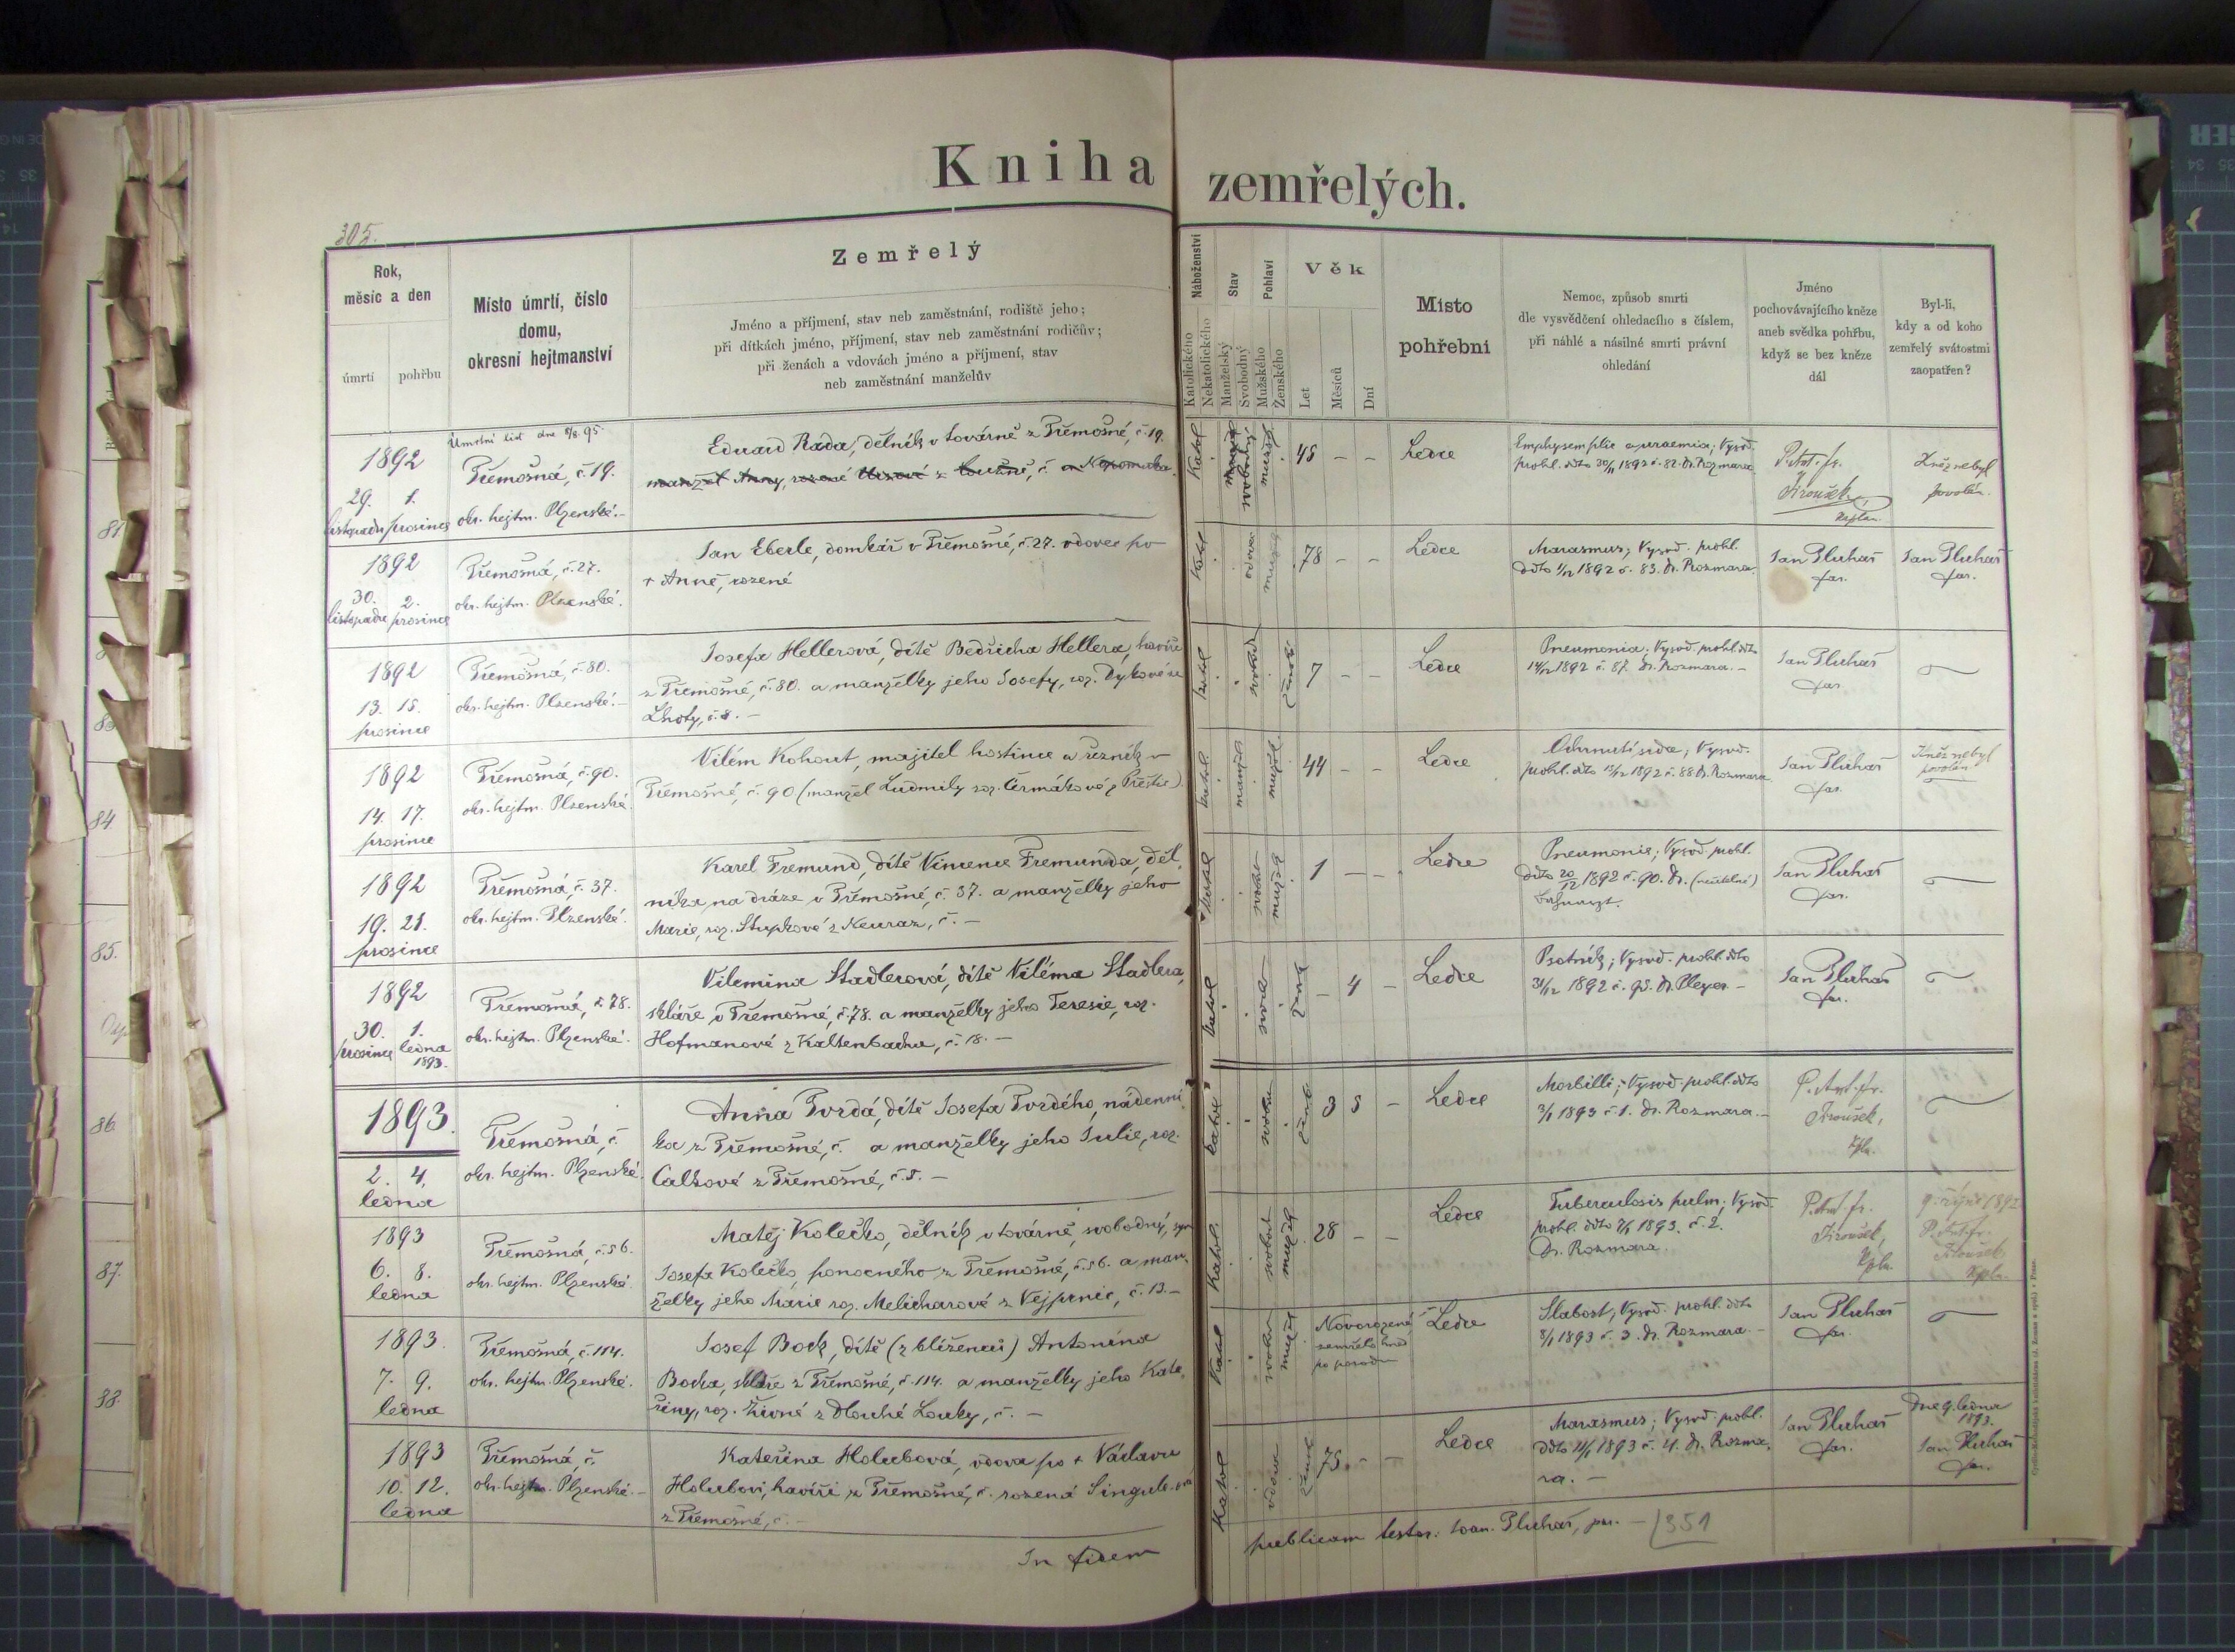 Kniha zemřelých.
305.
Rok,
měsíc a den
úmrtí
pohřbu
Místo úmrtí, číslo
domu,
okresní hejtmanství
Zemřelý
Jméno a příjmení, stav neb zaměstnání, rodiště jeho;
při dítkách jméno, příjmení, stav neb zaměstnání rodičův;
při ženách a vdovách jméno a příjmení, stav
neb zaměstnání manželův
Náboženství
Katolického
Nekatolického
Stav
Manželský
Svobodný
Pohlaví
Mužského
Ženského
Věk
Let
Měsíců
Dní
Místo
pohřební
Nemoc, způsob smrti
dle vysvědčení ohledacího s číslem,
při náhlé a násilné smrti právní
ohledání
Jméno
pochovávajícího kněze
aneb svědka pohřbu,
když se bez kněze
dál
Byl-li,
kdy a od koho
zemřelý svátostmi
zaopatřen?
1892
29. 1.
listopadu prosince
Úmrtní list dne 8/8. 95.
Třemošná, č. 19.
okr. hejtm. Plzenské.-
Eduard Ráda, dělník v továrně z Třemošné, č. 19.
manžel Anny, rozené
Katol
svobodný
mužsk
48 - -
Ledce
Emphysem plic a uraemia; Vysvd.
prohl. ddto 30/11 1892 č. 82. Dr. Rozmara
P. Ant. fr.
Jiroušek,
kaplan.
Kněz nebyl
povolán.
1892
30. 2.
listopadu prosince
Třemošná, č. 27.
okr. hejtm. Plzenské.
Jan Eberle, domkář v Třemošné, č. 27. vdovec po
+ Anně, rozené
Katol
vdovec
mužsk
78 - -
Ledce
Marasmus; Vysvd. prohl.
ddto 1/12 1892 č. 83. Dr. Rozmara.
Jan Pluhař
far.
Jan Pluhař
far.
1892
13. 15.
prosince
Třemošná, č. 80.
okr. hejtm. Plzenské.-
Josefa Hellerová, dítě Bedřicha Hellera, havíře
z Třemošné, č. 80. a manželky jeho Josefy, roz. Dykové ze
Lhoty, č. 8. -
Katol
svobod
žensk
7 - -
Ledce
Pneumonia; Vysvd. prohl. ddto
14/12 1892 č. 87. Dr. Rozmara. -
Jan Pluhař
far.
1892
14. 17.
prosince
Třemošná, č. 90.
okr. hejtm. Plzenské
Vilém Kohout, majitel hostince a řezník v
Třemošné, č. 90 (manžel Ludmily roz. Čermákové z Přeštic)
Katol
manžel
mužsk.
44 - -
Ledce
Ochrnutí srdce; Vysvd.
prohl. ddto 15/12 1892 č. 88 Dr. Rozmara
Jan Pluhař
far.
Kněz nebyl
povolán.
1892
19. 21.
prosince
Třemošná, č. 37.
okr. hejtm. Plzenské.
Karel Fremund, dítě Vincence Fremunda, děl-
níka na dráze v Třemošné, č. 37. a manželky jeho
Marie, roz. Stupkové z Neuraz, č. -
Katol
svobod
mužsk
1 - -
Ledce
Pneumonie; Vysvd. prohl.
ddto 20/12 1892 č. 90. Dr. (nečitelné)
Bahnarzt.
Jan Pluhař
far.
1892
30. 1.
prosince ledna
1893.
Třemošná, č. 78.
okr. hejtm. Plzenské.
Vilemina Stadlerová, dítě Viléma Stadlera,
skláře v Třemošné, č. 78. a manželky jeho Teresie, roz.
Hofmanové z Kaltenbachu, č. 18. -
Katol
svob
žensk
- 4 -
Ledce
Psotník; Vysvd. prohl. ddto
31/12 1892 č. 95. Dr. Pleyer -
Jan Pluhař
far.
1893.
2. 4.
ledna
Třemošná, č.
okr. hejtm. Plzenské.
Anna Tvrdá, dítě Josefa Tvrdého, nádenní-
ka z Třemošné, č. a manželky jeho Julie, roz.
Caltové z Třemošné, č. 5. -
Katol
svobod
žensk
3 5 -
Ledce
Morbilli; Vysvd. prohl. ddto
3/1 1893 č. 1. Dr. Rozmara. -
P. Ant. fr.
Jiroušek,
kpln.
1893
6. 8.
ledna
Třemošná, č. 56.
okr. hejtm. Plzenské.
Matěj Kolečko, dělník v továrně, svobodný, syn
Josefa Kolečko, ponocného z Třemošné, č. 56. a man-
želky jeho Marie roz. Melicharové z Vejprnic, č. 13. -
Katol.
svobod
mužsk
28 - -
Ledce
Tuberculosis pulm; Vysvd.
prohl. ddto 7/1 1893. č. 2.
Dr. Rozmara.
P. Ant. fr.
Jiroušek,
kpln.
9. října 1892
P. Ant. fr.
Jiroušek
kpln.
1893.
7. 9.
ledna
Třemošná, č. 114.
okr. hejtm. Plzenské.
Josef Bock, dítě (z blíženců) Antonína
Bocka, skláře z Třemošné, č. 114. a manželky jeho Kate-
řiny, roz. Živné z Dlouhé Louky, č. -
Katol
svobod
mužsk
Novorozené
zemřelo hned
po porodu
Ledce
Slabost; Vysvd. prohl. ddto
8/1 1893 č. 3. Dr. Rozmara. -
Jan Pluhař
far.
1893
10. 12.
ledna
Třemošná, č.
okr. hejtm. Plzenské. -
Kateřina Holubová, vdova po + Václavu
Holubovi, havíři z Třemošné, č. rozená
z Třemošné, č. -
Katol
vdova
žensk
75. - -
Ledce
Marasmus; Vysvd. prohl.
ddto 11/1 1893 č. 4. Dr. Rozma-
ra. -
Jan Pluhař
far.
Dne 9. ledna
1893.
Jan Pluhař
far.
In fidem publicam testor: Joan. Pluhař, par. - 351
81
83
84
85.
86
87.
88.